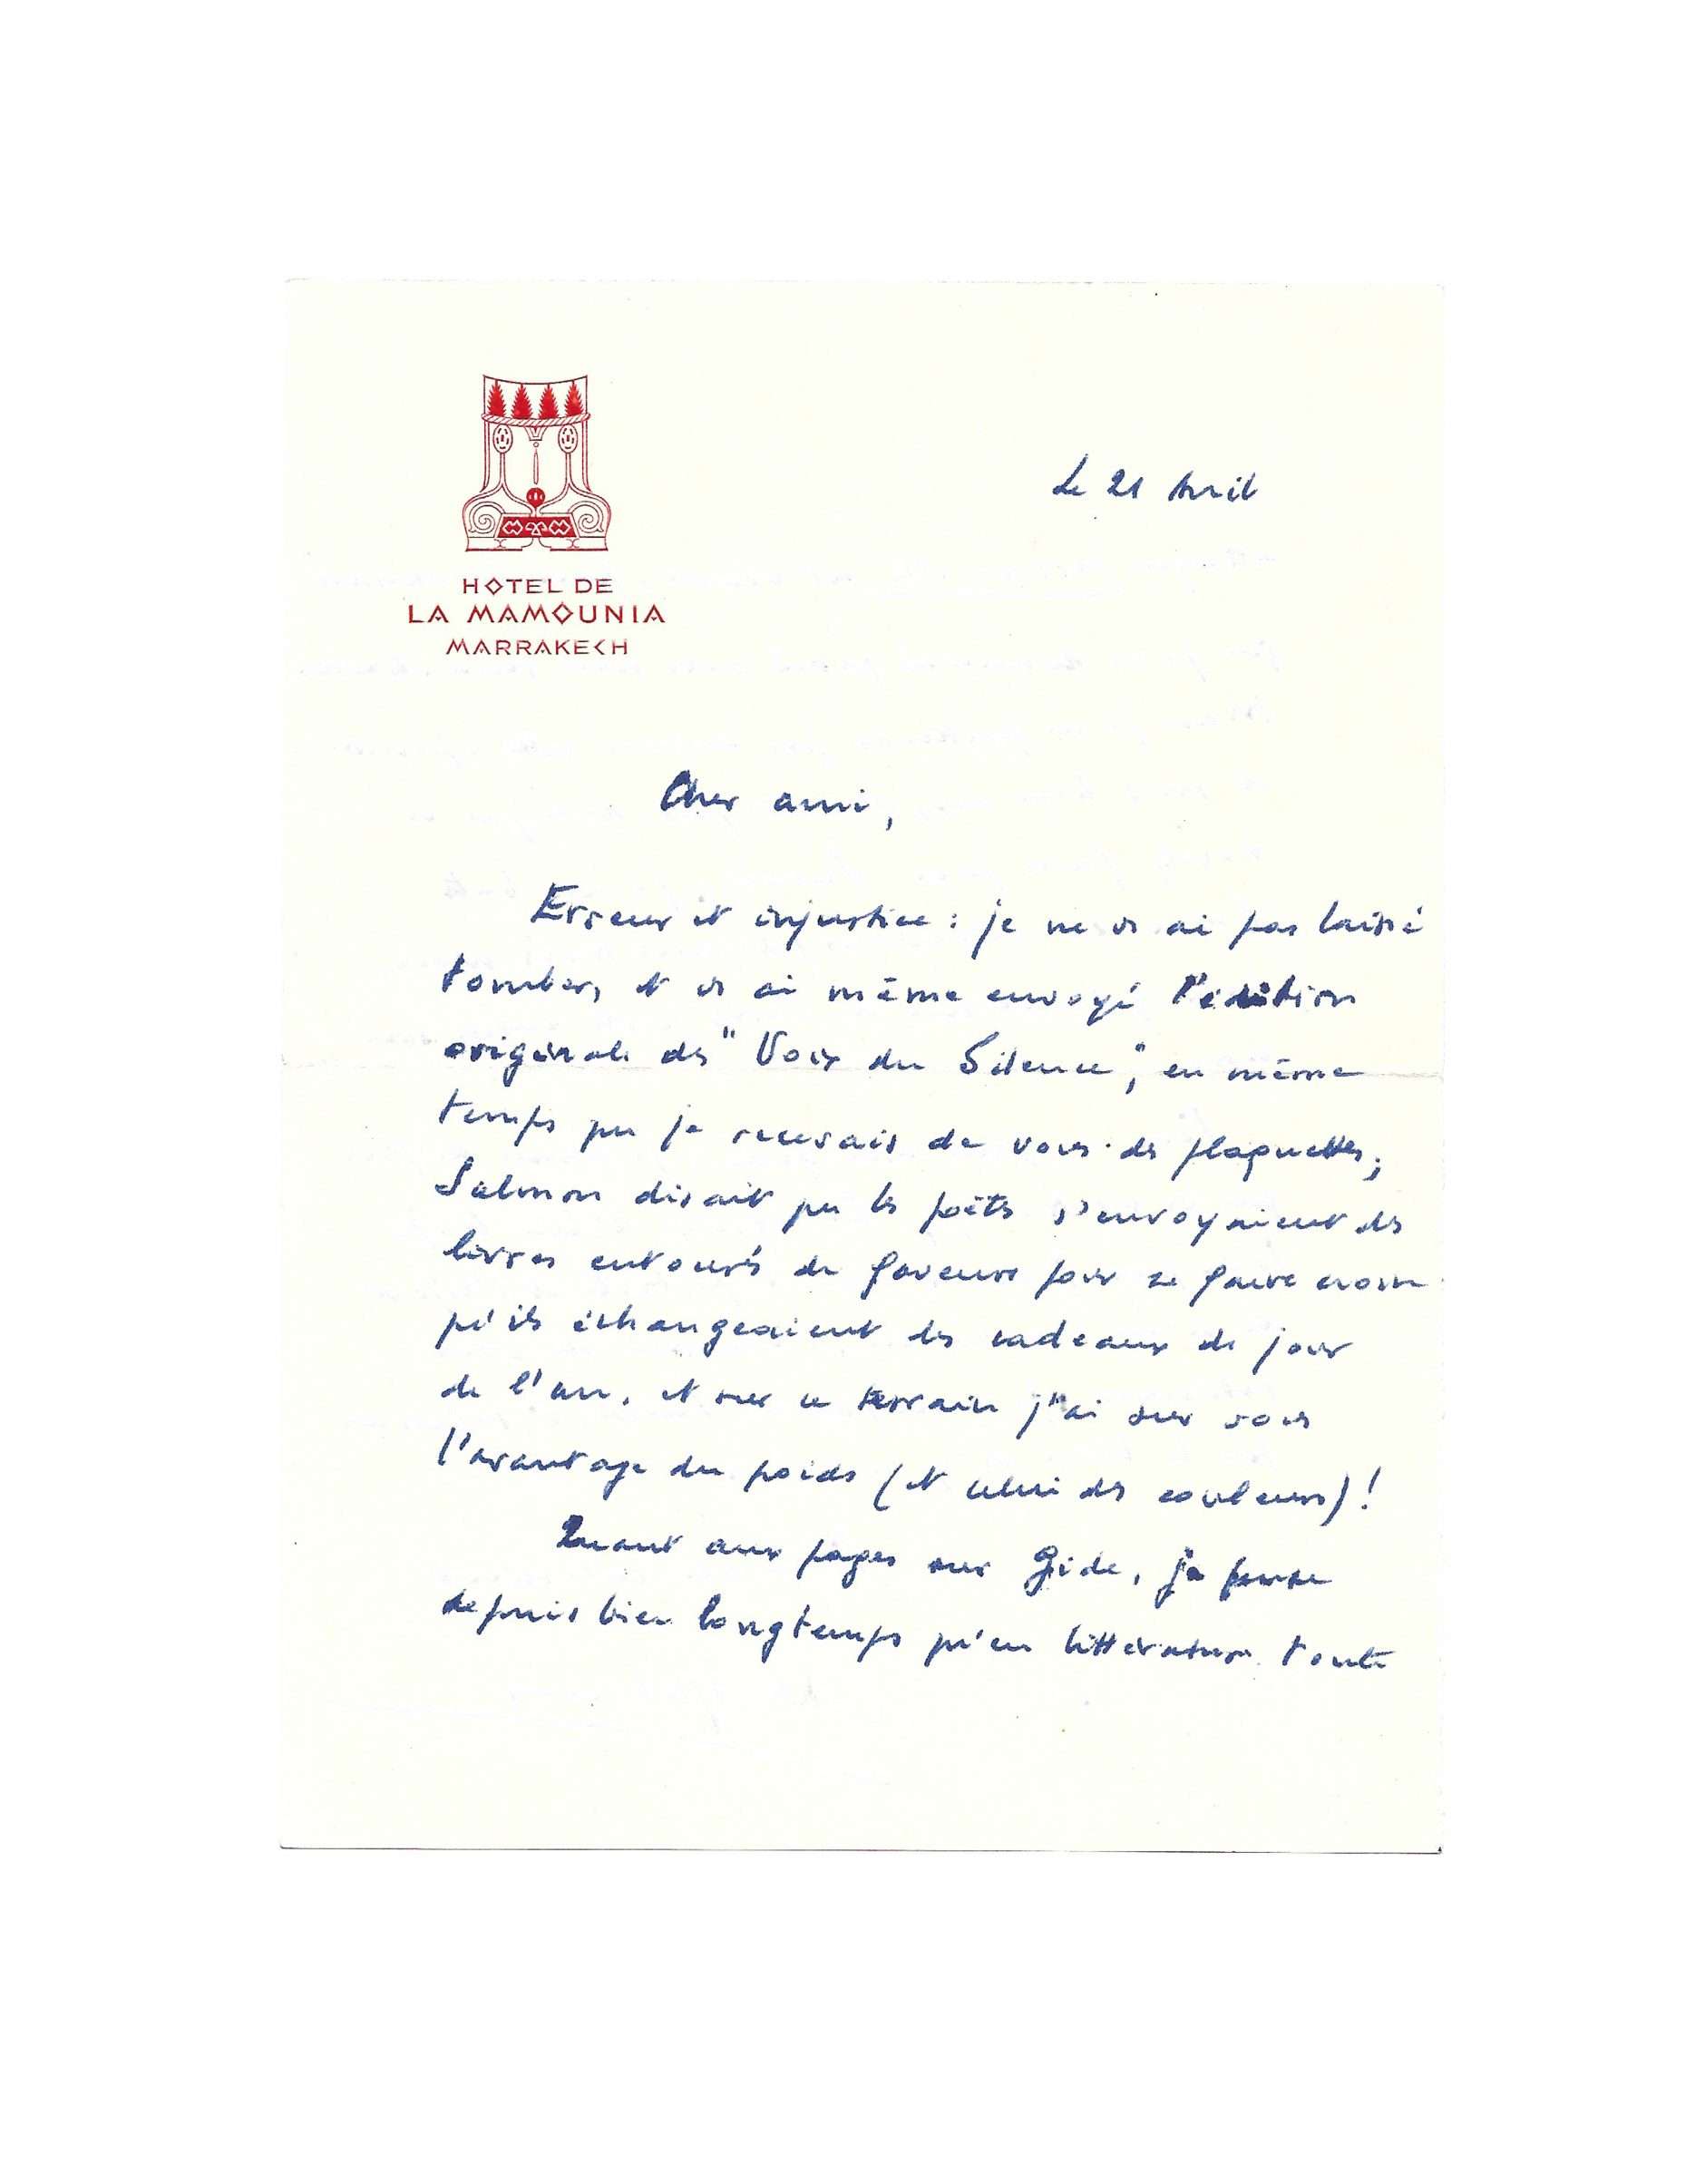 HOTEL DE
LA MAMOUNIA
MARRAKECH
Le 21 Avril
Cher ami,
Erreur et injustice : je ne vs ai pas laissé
tomber, et vs ai même envoyé l'édition
originale des "Voix du Silence", en même
temps que je recevais de vous des plaquettes;
Salmon disait que les poètes s'envoyaient des
livres entourés de faveurs pour se faire croire
qu'ils échangeaient des cadeaux de jour
de l'an. et sur ce terrain j'ai sur vous
l'avantage du poids (et celui des couleurs)!
Quant aux pages sur Gide, je pense
depuis bien longtemps qu'en littérature toute